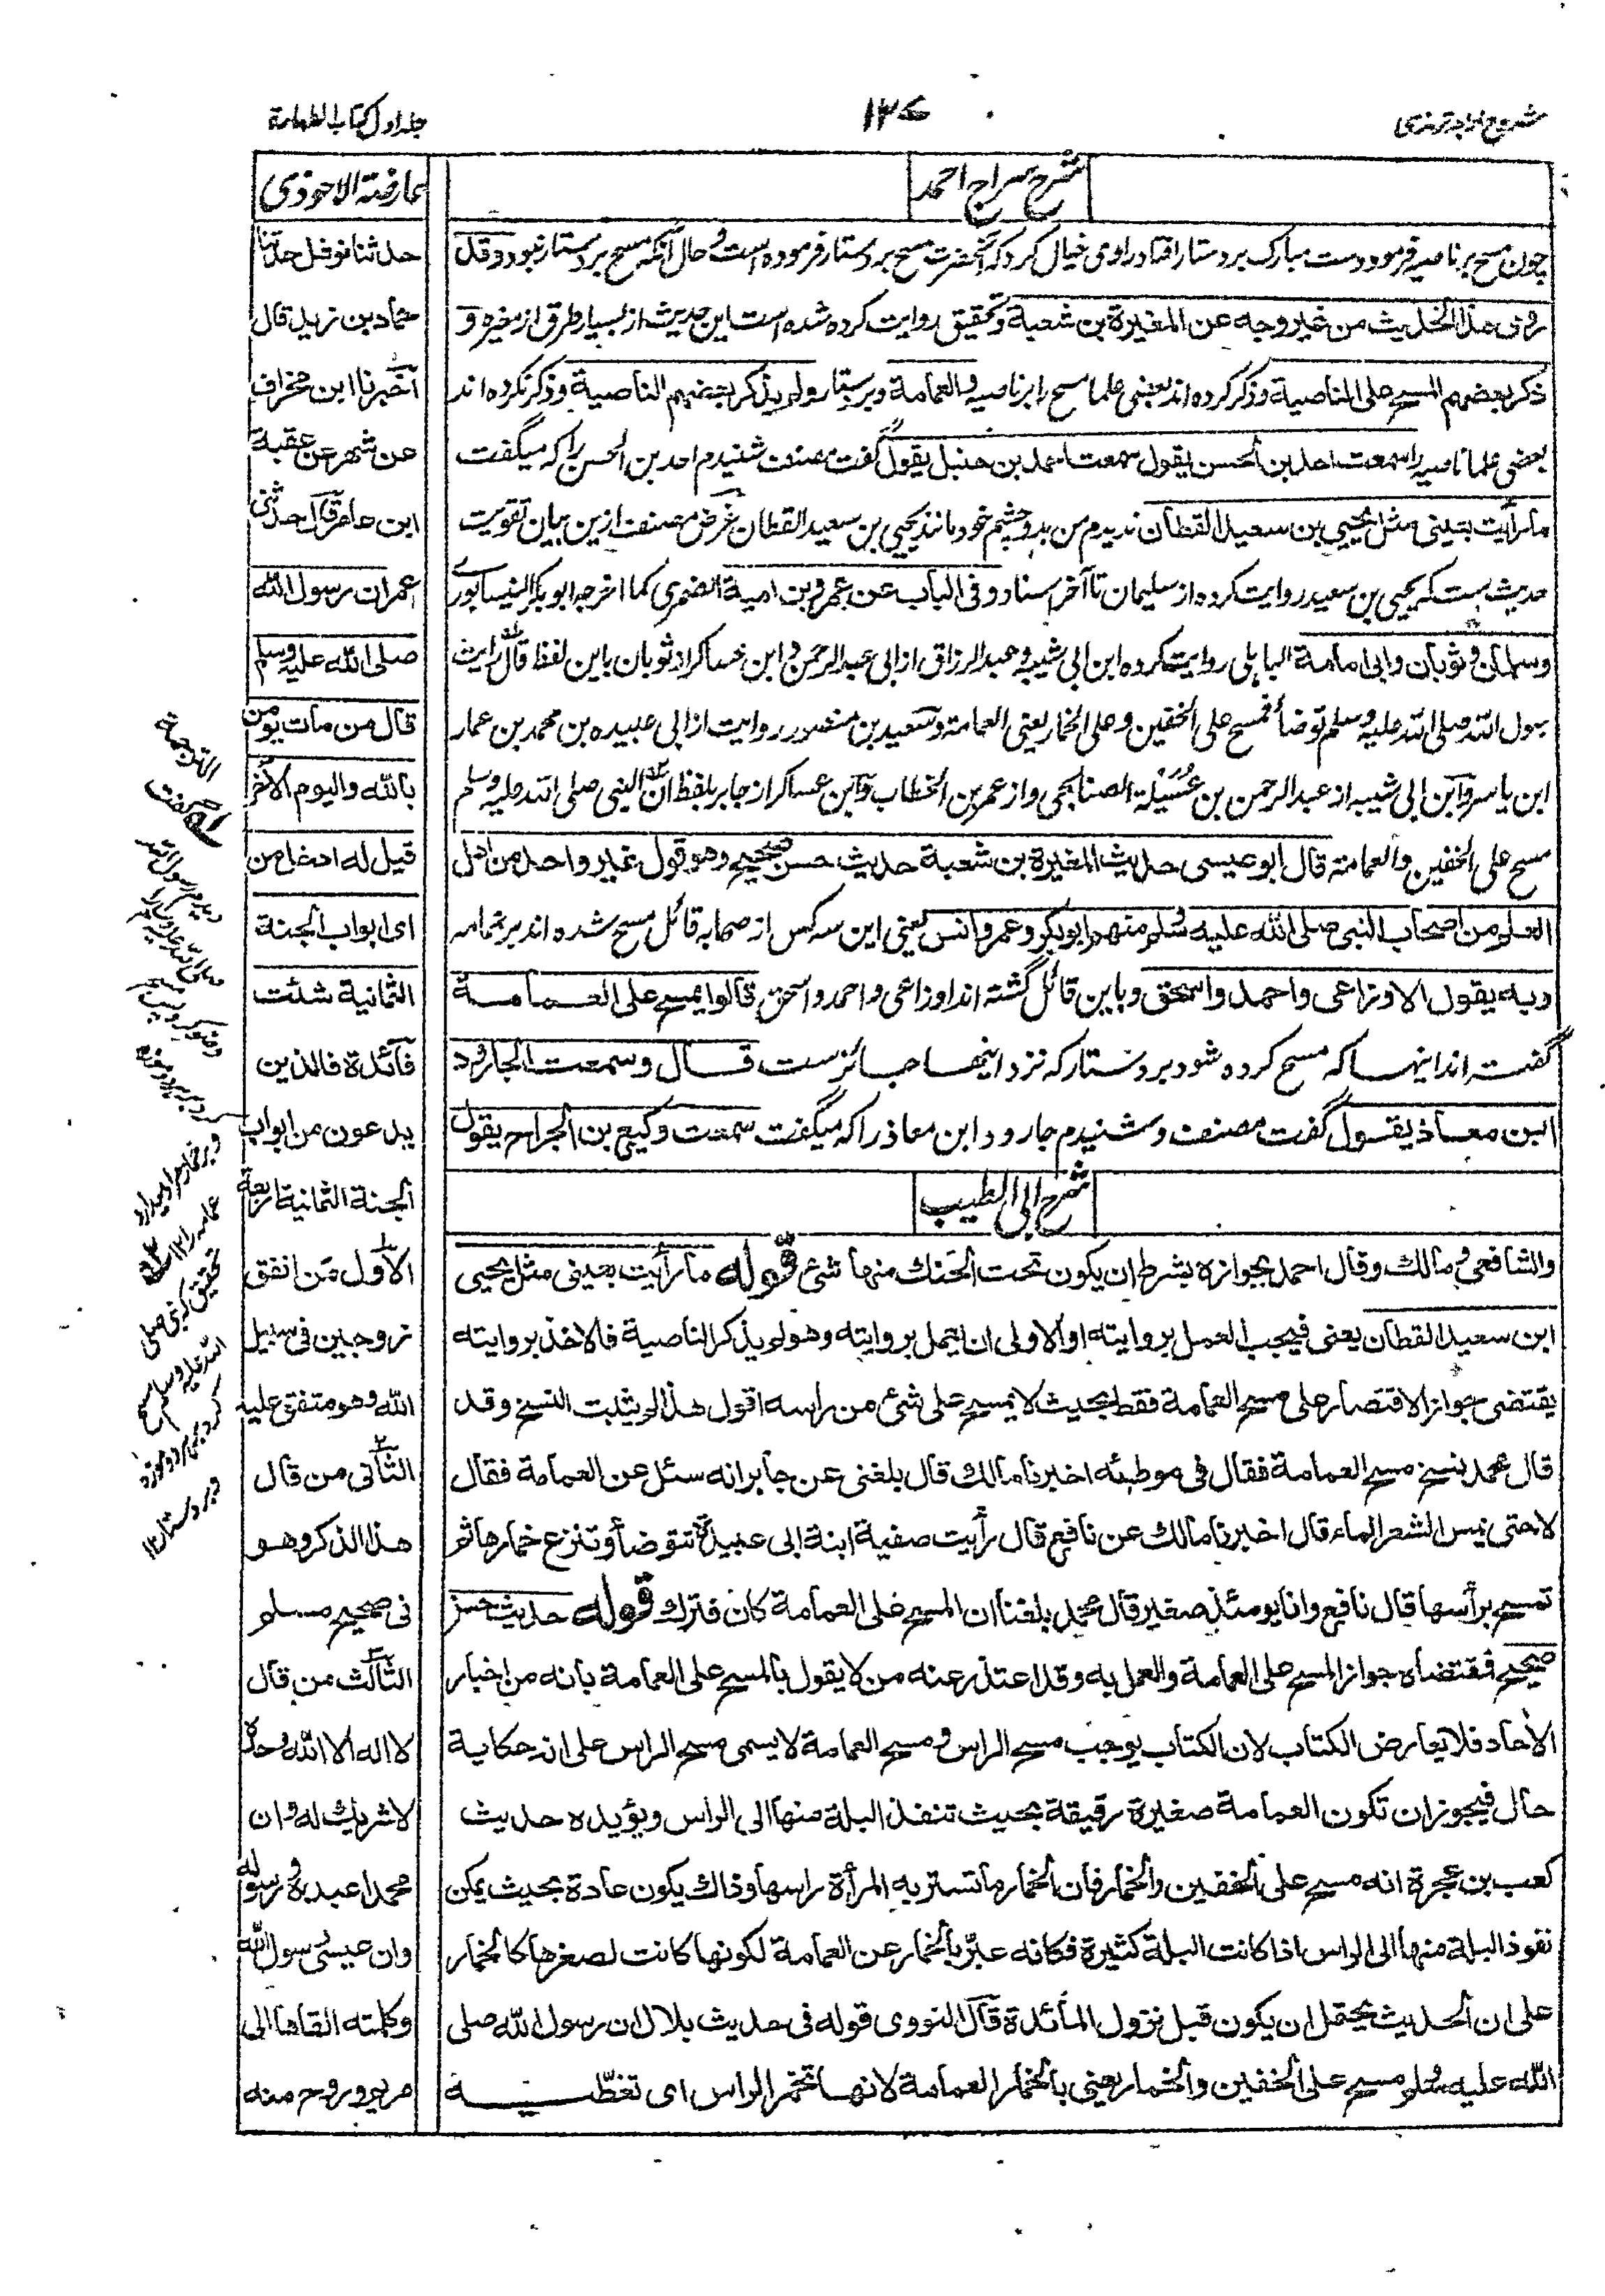 شروح اربعه ترمذی
۱۲۷
جلد اول کتاب الطهارة
شرح سراج احمد
چون مسح بر ناصیه فرمود دست مبارک بر دستار افتاد راوی خیال کرد که آنحضرت مسح بر دستار فرموده است و حال آنکه مسح بر دستار نبود وقد
روی هذا الحدیث من غیر وجه عن المغیرة بن شعبة و تحقیق روایت کرده شده است این حدیث از بسیار طرق از مغیره و
ذکر بعضهم المسح علی الناصیة و ذکر کرده اند بعضی علما مسح را بر ناصیه والعمامة و بر دستار ولم یذکر بعضهم الناصیة و ذکر نکرده اند
بعضی علما ناصیه را سمعت احمد بن الحسن یقول سمعت احمد بن حنبل یقول گفت مصنف شنیدم احمد بن الحسن را که میگفت
ما رأیت بعینی مثل یحیی بن سعید القطان ندیدم من بدو چشم خود مانند یحیی بن سعید القطان غرض مصنف ازین بیان تقویت
حدیث ست که یحیی بن سعید روایت کرده از سلیمان تا آخر اسناد وفی الباب عن عمرو بن امیة الضمری کما اخرجه ابو بکر النیسابوری
وسلمان وثوبان وابی امامة الباهلی روایت کرده ابن ابی شیبه و عبد الرزاق از ابی عبد الرحمن و ابن عساکر از ثوبان باین لفظ قال رأیت
رسول الله صلی الله علیه وسلم توضأ فمسح علی الخفین وعلی الخمار یعنی العمامة و سعید بن منصور روایت از ابی عبیده بن محمد بن عمار
ابن یاسر و ابن ابی شیبه از عبد الرحمن بن عُسَیْلة الصنابحی و از عمر بن الخطاب و ابن عساکر از جابر بلفظ ان النبی صلی الله علیه وسلم
مسح علی الخفین والعمامة قال ابو عیسی حدیث المغیرة بن شعبة حدیث حسن صحیح وهو قول غیر واحد من اهل
العلم من اصحاب النبی صلی الله علیه وسلم منهم ابو بکر وعمر وانس یعنی این سه کس از صحابه قائل مسح شده اند بر عمامه
وبه یقول الاوزاعی واحمد واسحق و باین قائل گشته اند اوزاعی و احمد و اسحق قالوا یمسح علی العمامة
گفته اند اینها که مسح کرده شود بر دستار که نزد اینها جائز ست قال وسمعت الجارود
ابن معاذ یقول گفت مصنف و شنیدم جارود ابن معاذ را که میگفت سمعت وکیع بن الجراح یقول
شرح ابی الطیب
والشافعی ومالك وقال احمد بجوازه بشرط ان یکون تحت الحنك منها شئ قوله ما رأیت بعینی مثل یحیی
ابن سعید القطان یعنی فیجب العمل بروایته او الاولی ان یعمل بروایته وهو لم یذکر الناصیة فالاخذ بروایته
یقتضی جواز الاقتصار علی مسح العمامة فقط بحیث لا یمسح علی شئ من راسه اقول هذا لو یثبت النسخ وقد
قال محمد بنسخ مسح العمامة فقال فی موطئه اخبرنا مالك قال بلغنی عن جابر انه سئل عن العمامة فقال
لا حتی یمس الشعر الماء قال اخبرنا مالك عن نافع قال رأیت صفیة ابنة ابی عبیدة تتوضأ وتنزع خمارها ثم
تمسح برأسها قال نافع وانا یومئذ صغیر قال محمد بلغنا ان المسح علی العمامة کان فترك قوله حدیث حسن
صحیح فمقتضاه جواز المسح علی العمامة والعمل به وقد اعتذر عنه من لا یقول بالمسح علی العمامة بانه من اخبار
الآحاد فلا یعارض الکتاب لان الکتاب یوجب مسح الراس ومسح العمامة لا یسمی مسح الراس علی انه حکایة
حال فیجوز ان تکون العمامة صغیرة رقیقة بحیث تنفذ البلة منها الی الراس ویؤیده حدیث
کعب بن عجرة انه مسح علی الخفین والخمار فان الخمار ما تستر به المرأة راسها وذاك یکون عادة بحیث یمکن
نفوذ البلة منها الی الراس اذا کانت البلة کثیرة فکانه عبّر بالخمار عن العمامة لکونها کانت لصغرها کالخمار
علی ان الحدیث یحتمل ان یکون قبل نزول المائدة قال النووی قوله فی حدیث بلال ان رسول الله صلی
الله علیه وسلم مسح علی الخفین والخمار یعنی بالخمار العمامة لانها تخمر الراس ای تغطیه
عارضة الاحوذی
حدثنا نوفل حدثنا
حماد بن زید قال
اخبرنا ابن مخراق
عن شهر عن عقبة
ابن عامر قال حدثنی
عمر ان رسول الله
صلی الله علیه وسلم
قال من مات یؤمن
بالله والیوم الآخر
قیل له ادخل من
ای ابواب الجنة
الثمانیة شئت
فائدة فالذین
یدعون من ابواب
الجنة الثمانیة اربعة
الاول من انفق
زوجین فی سبیل
الله وهو متفق علیه
الثانی من قال
هذا الذکر وهو
فی صحیح مسلم
الثالث من قال
لا اله الا الله وحده
لا شریك له وان
محمدا عبده ورسوله
وان عیسی رسول الله
وکلمته القاها الی
مریم وروح منه
الترجمة
له گفت
دیدم رسول الله
صلی الله علیه وسلم را
وضو کرد پس
مسح کرد بر هر دو موزه
و بر خمار مراد میدارد
عمامه را ۱۲
تحقیق که نبی صلی
الله علیه وسلم مسح
کرد بر هر دو موزه
و بر دستار ۱۲